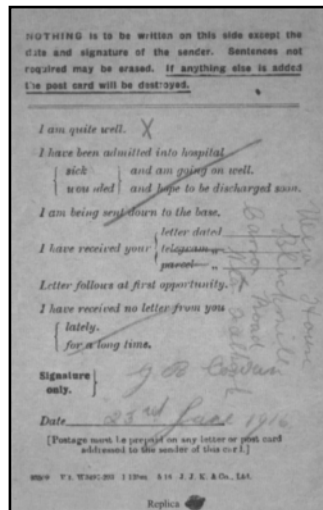 NOTHING is to be written on this side except the
date and signature of the sender. Sentences not
required may be erased. If anything else is added
the post card will be destroyed.
I am quite well. X
I have been admitted into hospital
{ sick } and am going on well.
{ wounded } and hope to be discharged soon.
I am being sent down to the base.
I have received your { letter dated
telegram „
parcel „
Letter follows at first opportunity.
I have received no letter from you
{ lately.
for a long time.
Signature
only. }
Date 23rd 1916
[Postage must be prepaid on any letter or post card
addressed to the sender of this card.]
J. J. K. & Co., Ltd.
Replica